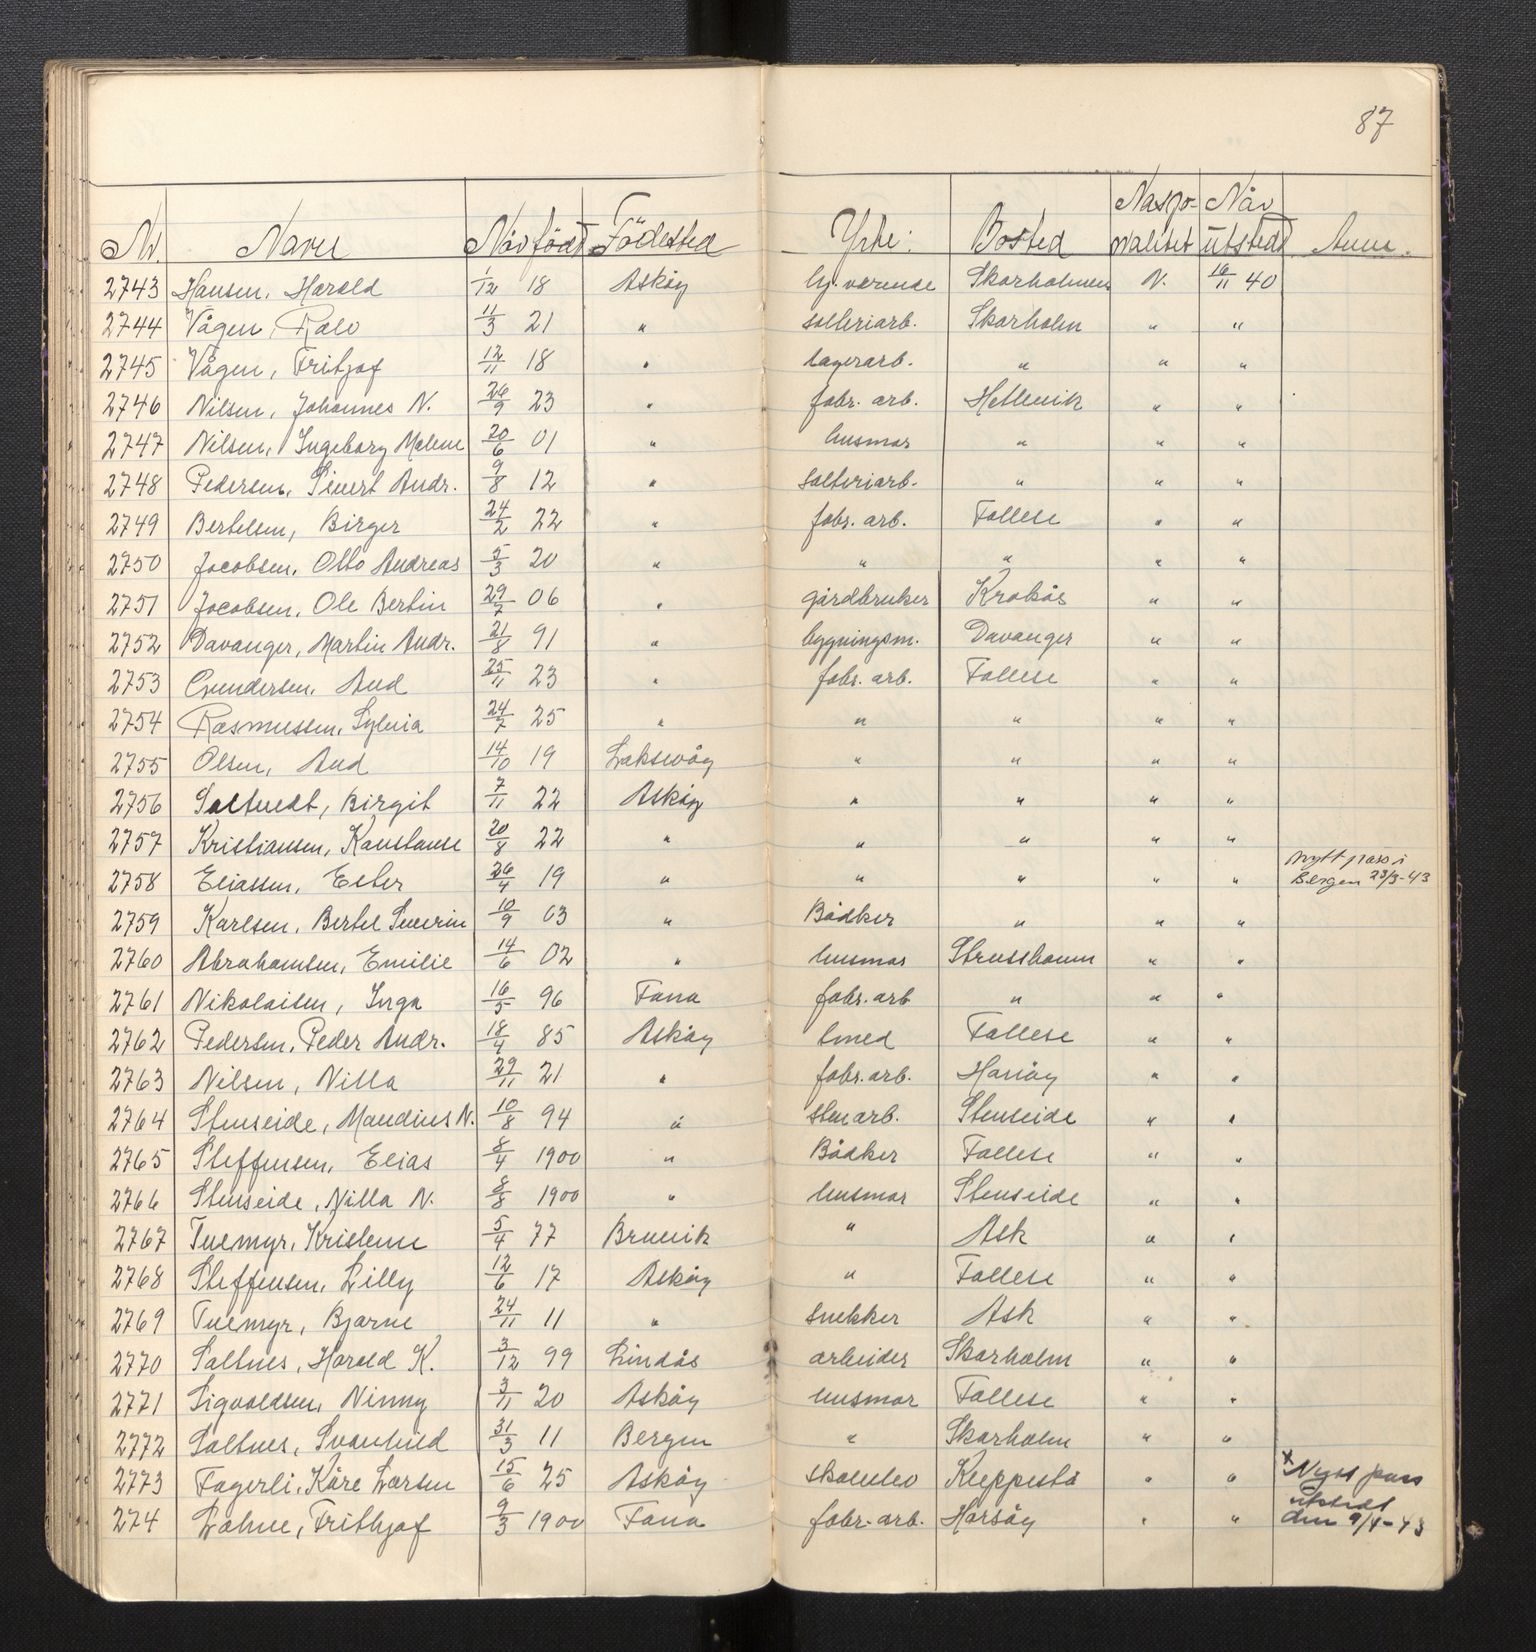 87
Nr. Navn Når født Födested Yrke: Bosted Nasjo-nalitet Når utstedt Anm.
2743 Hansen, Harald 1/12 18 Askøy hj. værende Skarholmen N. 16/11 40
2744 Vågen, Rolv 11/3 21 " salteriarb. Skarholm " "
2745 Vågen, Fritjof 12/11 18 " lagerarb. " " "
2746 Nilsen, Johannes N. 26/9 23 " fabr. arb. Hetlevik " "
2747 Nilsen, Ingeborg Malene 20/6 01 " husmor " " "
2748 Pedersen, Sivert Andr. 9/8 12 " salteriarb. " " "
2749 Bertelsen, Birger 24/2 22 " fabr. arb. Follese " "
2750 Jacobsen, Otto Andreas 5/3 20 " " " " "
2751 Jacobsen, Ole Bertin 29/7 06 " gårdbruker Krokås " "
2752 Davanger, Martin Andr. 21/8 91 " bygningsm. Davanger " "
2753 Gundersen, Aud 25/11 23 " fabr. arb. Follese " "
2754 Rasmussen, Sylvia 24/7 25 " " " " "
2755 Olsen, Aud 14/10 19 Laksevåg " " " "
2756 Saltvedt, Birgit 7/11 22 Askøy " " " "
2757 Kristiansen, Konstanse 20/8 22 " " " " "
2758 Eliassen, Ester 26/4 19 " " " " " Nytt pass i Bergen 23/3-43
2759 Karlsen, Bertel Severin 10/9 03 " Bödker " " "
2760 Abrahamsen, Emilie 14/6 02 " husmor Strusshamn " "
2761 Nikolaisen, Inga 16/5 96 Fana fabr. arb " " "
2762 Pedersen, Peder Andr. 18/4 85 Askøy smed Follese " "
2763 Nilsen, Nilla 29/11 21 " fabr. arb. Hanøy " "
2764 Stenseide, Mandius N. 10/8 94 " sten arb. Stenseide " "
2765 Steffensen, Elias 8/4 1900 " Bödker Follese " "
2766 Stenseide, Nilla N. 8/8 1900 " husmor Stenseide " "
2767 Tuemyr, Kristenn 5/4 77 Bruvik " Ask " "
2768 Steffensen, Lilly 12/6 17 Askøy " Follese " "
2769 Tuemyr, Bjarne 24/11 11 " snekker Ask " "
2770 Saltnes, Harald K. 3/12 99 Lindås arbeider Skarholm " "
2771 Sigvaldsen, Ninny 3/11 20 Askøy husmor Follese " "
2772 Saltnes, Svanhild 31/3 11 Bergen " Skarholm " "
2773 Fagerli, Kåre Larsen 15/6 25 Askøy skoleelev Kleppestø " " x Nytt pass utstedt
274 Lohne, Frithjof 9/3 1900 Fana fabr. arb. Horsøy " " den 9/4-43